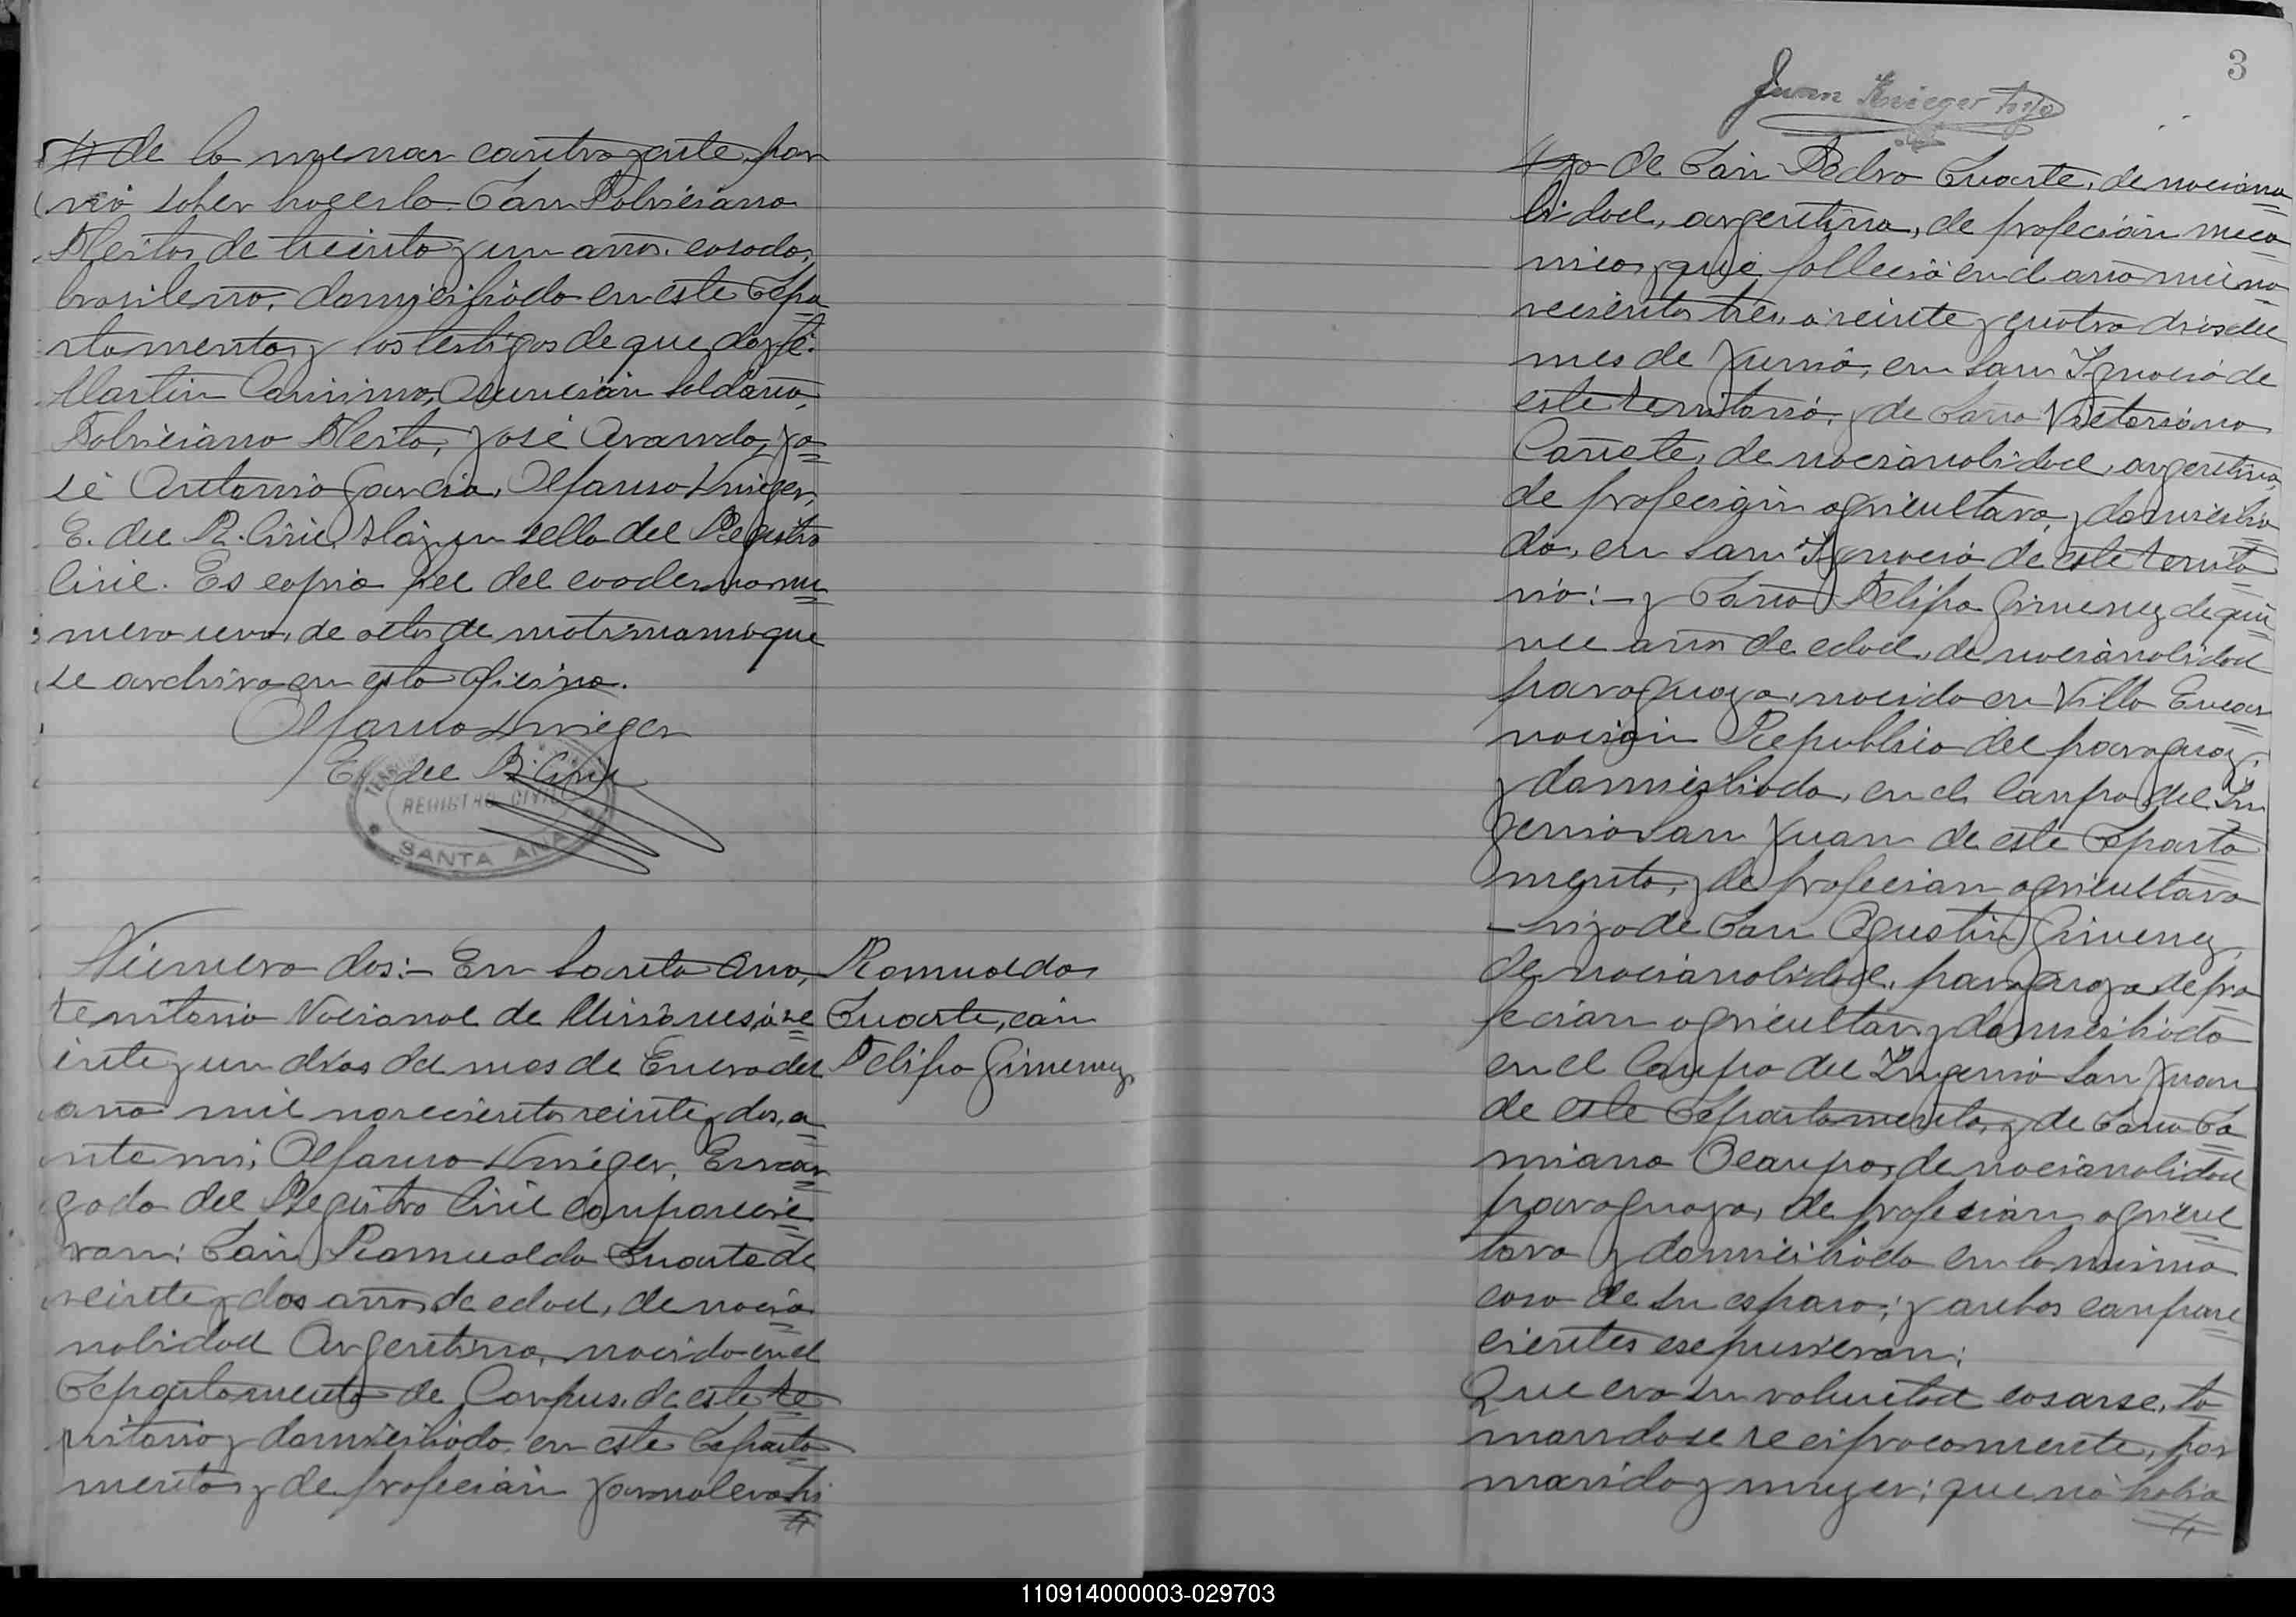 de la menor contrayente, por
no saber hacerlo. Don Polniciano
de treinta y un años, casado,
brasilero, domiciliado en este Depa
rtamento, y los testigos de que doy fé.
Martin Asuncion Soldano,
Polniciano José Aranda, Jo
sé Antonio Garcia, Alfonso Krieger,
E. del R. Civil. Hay un sello del Registro
Civil. Es copia fiel del cuaderno nu
mero uno, de actos de matrimonio que
se archiva en esta oficina.
Alfonso Krieger
E. del R. Civil
REGISTRO CIVIL
SANTA ANA
Número dos:- En Santa Ana,
territorio Nacional de Misiones, á ve
inte y un dias del mes de Enero del
año mil novecientos veinte y dos, a
nte mi, Alfonso Krieger, Encar
gado del Registro Civil comparecie
ron: Don Romualdo Duarte de
veinte y dos años de edad, de nacio
nalidad Argentina, nacido en el
Departamento de Corpus, de este te
rritorio y domiciliado, en este Departa
mento, y de profecion jornalero, hi
Romualdo
Duarte, con
Felipa Gimenez
3
Juan Krieger hijo
jo de Don Pedro Duarte, de naciona
lidad, argentina, de profecion meca
nico, y que fallecio en el año mil no
vecientos tres, a veinte y cuatro dias del
mes de Junio, en San Ignacio de
este territorio, y de Doña Victoriana
Cañete, de nacionalidad, argentina,
de profecion agricultora, y domicilia
da, en San Ignacio de este territo
rio:- y Doña Felipa Gimenez de quin
ce años de edad, de nacionalidad
paraguaya, nacida en Villa Encar
nacion Republica del paraguay,
y domiciliada, en el Campo del In
genio San Juan de este Departa
mento, y de profecion agricultora
- hija de Don Agustin Gimenez,
de nacionalidad, paraguaya de pro
fecion agricultor, y domiciliado
en el Campo del Ingenio San Juan
de este Departamento, y de Doña Da
miana Ocampo, de nacionalidad
paraguaya, de profesion agricul
tora y domiciliada en la misma
casa de su esposo; y ambos compare
cientes expusieron:
Que era su voluntad casarse, to
mandose reciprocamente, por
marido y mujer; que nó habia
110914000003-029703